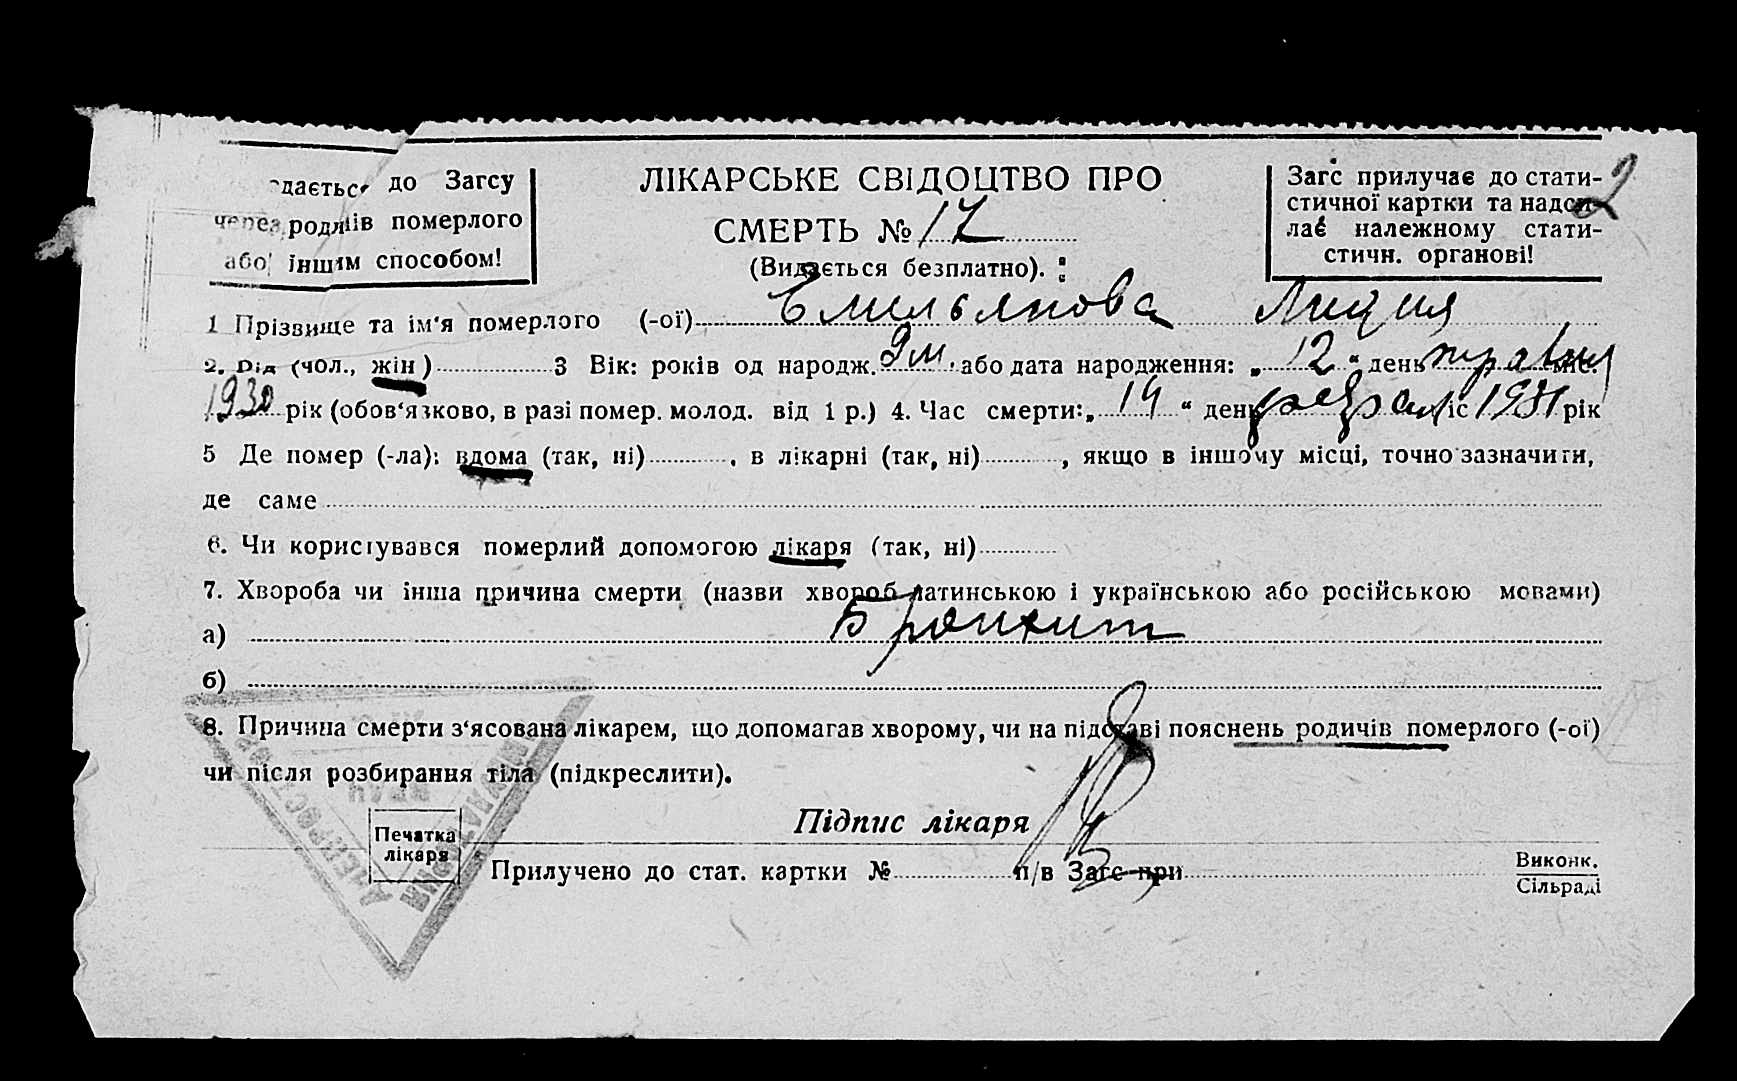 дається до Загсу
через родичів померлого
або іншим способом!
ЛІКАРСЬКЕ СВІДОЦТВО ПРО
СМЕРТЬ № 17
(Видається безплатно).
Загс прилучає до стати-
стичної картки та надси-
лає належному стати-
стичн. органові!
2
1 Прізвище та ім'я померлого (-ої) Емельянова Лидия
2. Рід (чол., жін) 3 Вік: років од народж. 9 м. або дата народження: „12“ день травня міс.
1930 рік (обов'язково, в разі помер. молод. від 1 р.) 4. Час смерти: „14“ день февраля міс 1931 рік
5 Де помер (-ла): вдома (так, ні), в лікарні (так, ні), якщо в іншому місці, точно зазначити,
де саме
6. Чи користувався померлий допомогою лікаря (так, ні)
7. Хвороба чи інша причина смерти (назви хвороб латинською і українською або російською мовами)
а) Бронхит
б)
8. Причина смерти з'ясована лікарем, що допомагав хворому, чи на підставі пояснень родичів померлого (-ої)
чи після розбирання тіла (підкреслити).
Підпис лікаря
Печатка
лікаря
Прилучено до стат. картки № п/в Загс при
Виконк.
Сільраді